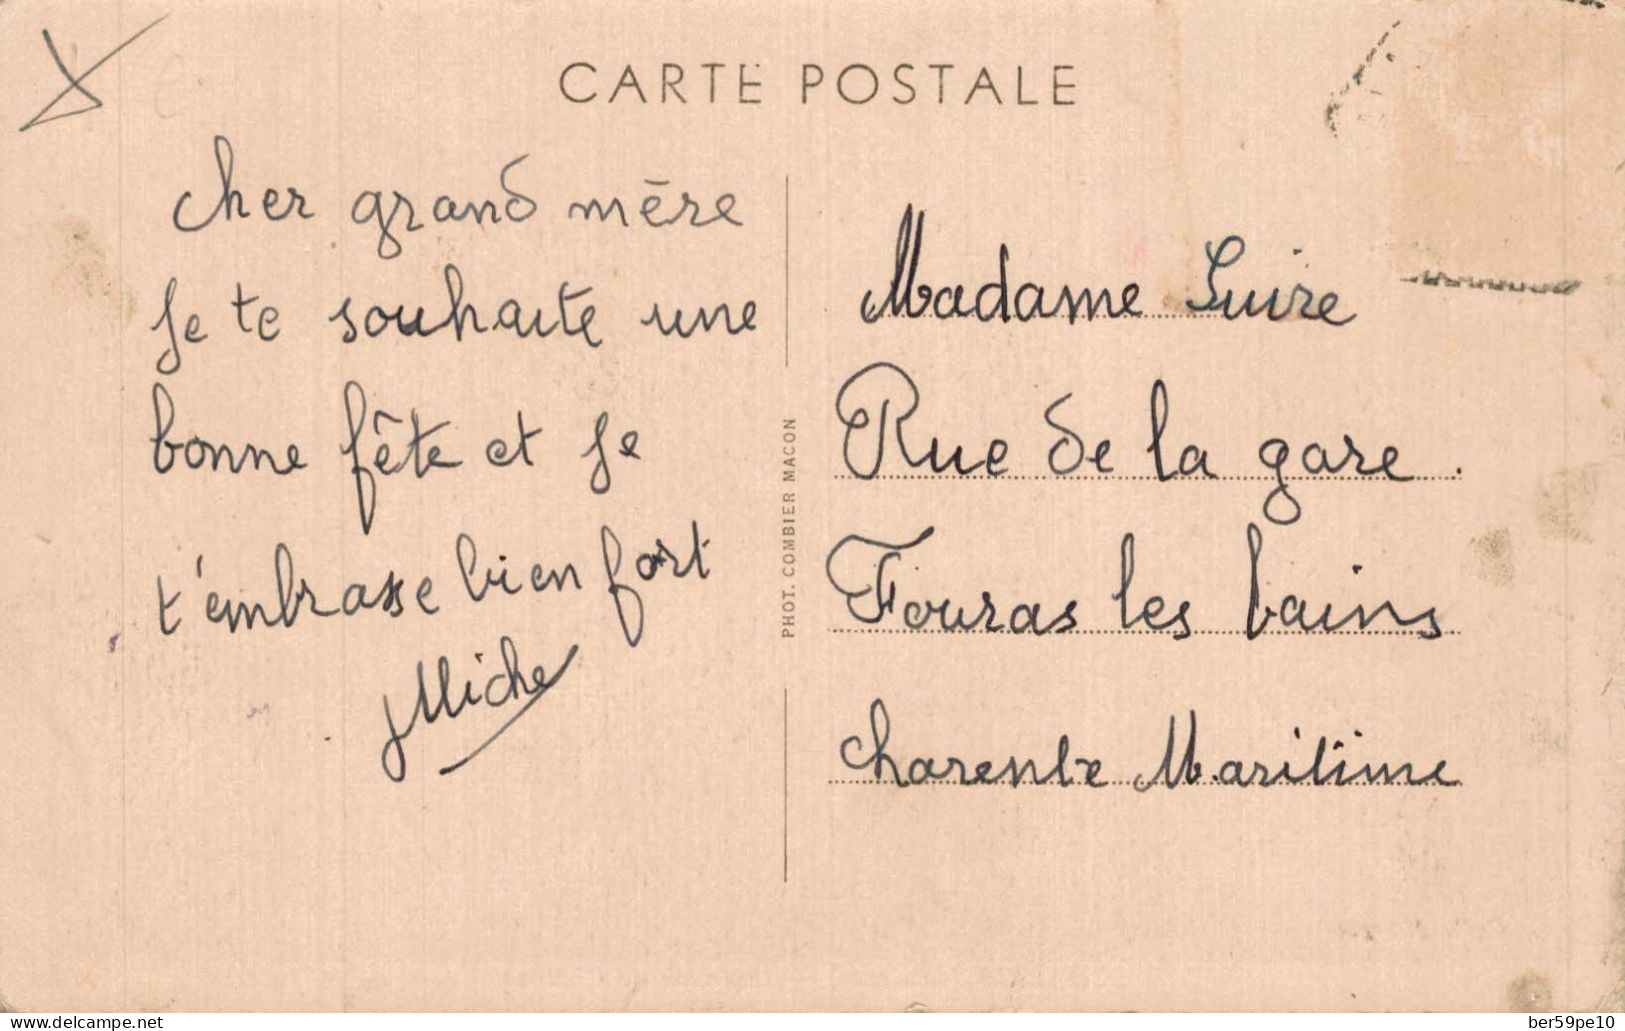 CARTE POSTALE
Cher grand mère
Je te souhaite une
bonne fête et Je
t'embrasse bien fort
Miche
PHOT. COMBIER MACON
Madame Suire
Rue de la gare.
Fouras les bains
Charente Maritime
www.delcampe.net
ber59pe10